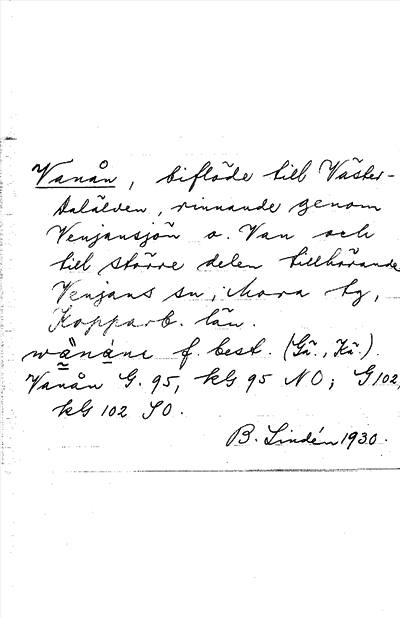 Vanån, biflöde till Väster-
dalälven, rinnande genom
Venjansjön o. Van och
till större delen tillhörande
Venjans sn, Mora tg,
Kopparb. län.
wànáne f. best. (Gä., Kä.).
Vanån G. 95, kG 95 NO; G 102,
kG 102 SO.
B. Lindén 1930.